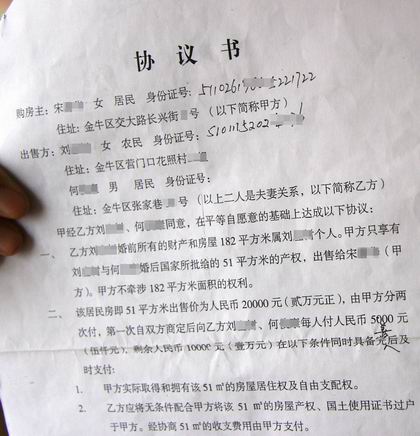 协议书
购房主：宋 女 居民 身份证号：
住址：金牛区交大路长兴街 号（以下简称甲方）
出售方：刘 女 农民 身份证号：
住址：金牛区营门口花照村
何 男 居民 身份证号：
住址：金牛区张家巷 号（以上二人是夫妻关系，以下简称乙方）
甲经乙方刘 、何 同意，在平等自愿意的基础上达成以下协议：
一、 乙方刘 婚前所有的财产和房屋 182 平方米属刘 个人。甲方只享有
刘 与何 婚后国家所批给的 51 平方米的产权，出售给宋 （甲
方）。甲方不牵涉 182 平方米面积的权利。
二、 该居民房即 51 平方米出售价为人民币 20000 元（贰万元正），由甲方分两
次付，第一次自双方商定后向乙方刘 、何 每人付人民币 5000 元
（伍仟元），剩余人民币 10000 元（壹万元）在以下条件同时具备 后及
时支付：
1. 甲方实际取得和拥有该 51 ㎡的房屋居住权及自由支配权。
2. 乙方应将无条件配合甲方将该 51 ㎡的房屋产权、国土使用证书过户
于甲方。经协商 51 ㎡的收支费用由甲方支付。